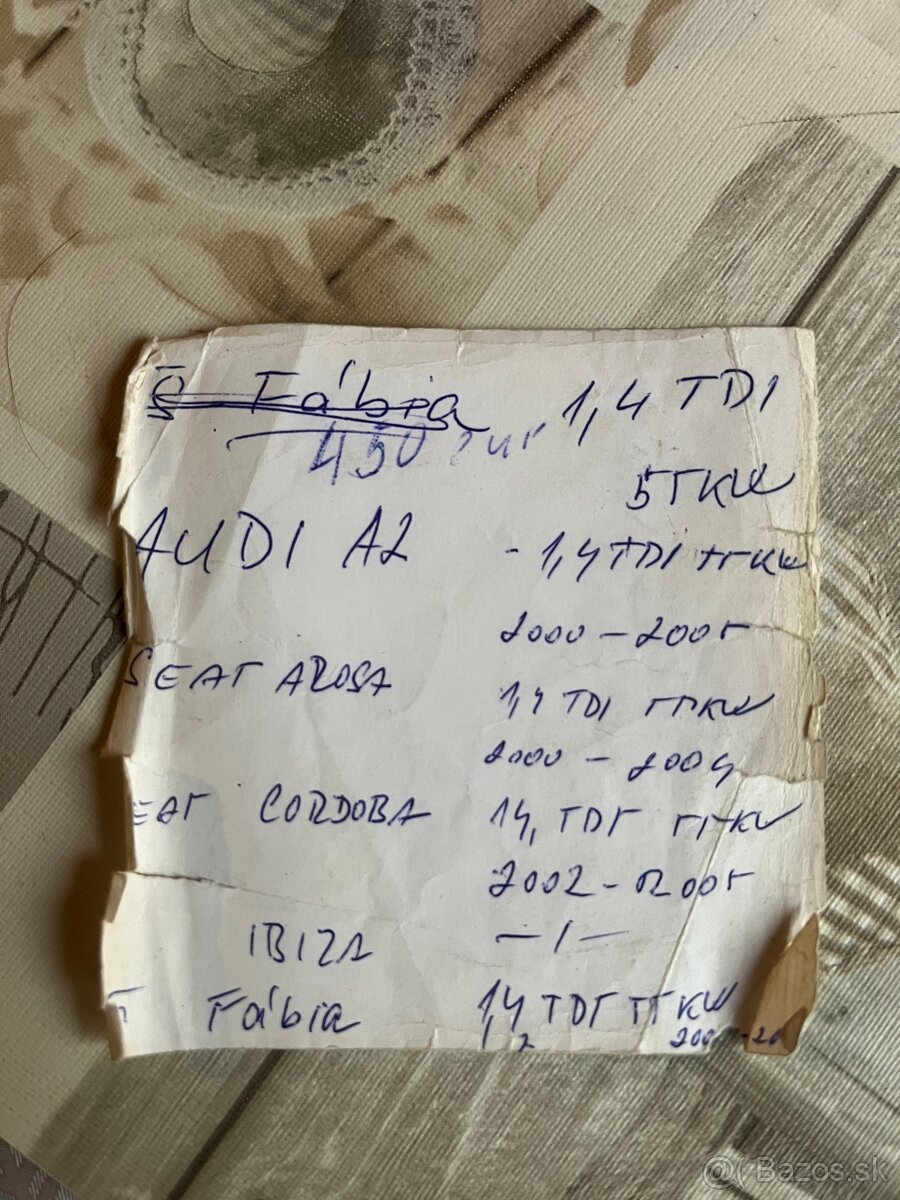 Š Fábia 1,4 TDI
450 eur
55KW
AUDI A2 - 1,4 TDI 55KW
2000 - 2005
SEAT AROSA 1,4 TDI 55KW
2000 - 2004
EAT CORDOBA 14, TDI 55KW
2002 - 2005
IBIZA —/—
Fábia 1,4 TDI 55 KW
@ Bazos.sk